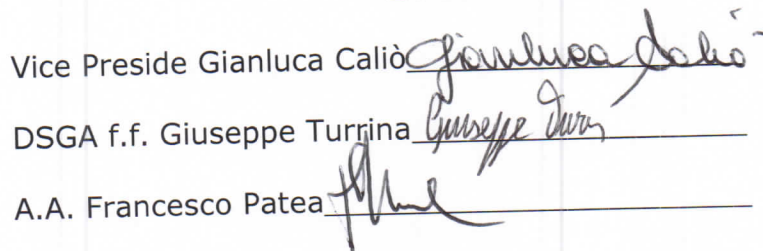 Vice Preside Gianluca Caliò Gianluca Caliò
DSGA f.f. Giuseppe Turrina Giuseppe Turr
A.A. Francesco Patea